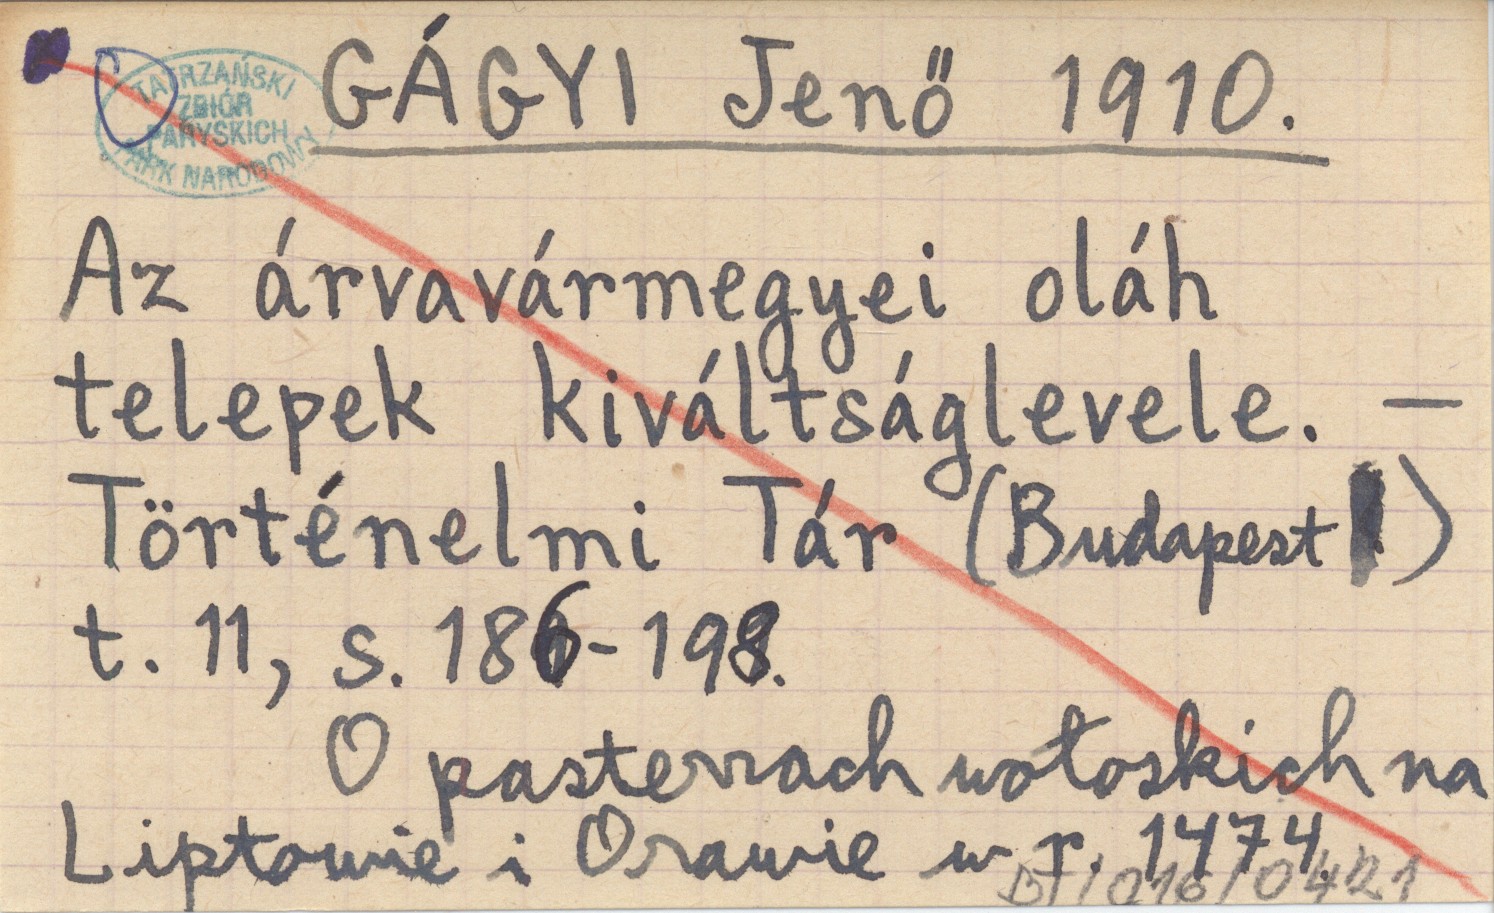 GÁGYI Jenő 1910.
TATRZAŃSKI
ZBIÓR
PARYSKICH
PARK NARODOWY
Az árvavármegyei oláh
telepek kiváltságlevele. —
Történelmi Tár (Budapest)
t. 11, s. 186-198.
O pasterzach wołoskich na
Liptowie i Orawie w r. 1474.
DT/016/0421